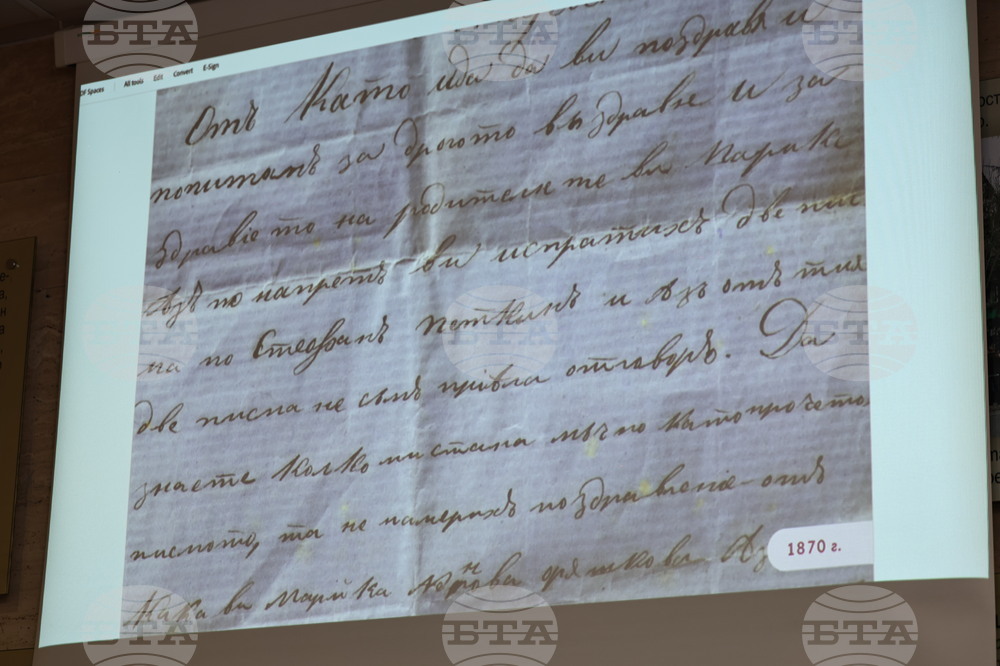 БТА БТА БТА
DF Spaces All tools Edit Convert E-Sign
Отъ Като ида да ви поздравѫ и
попитамъ за дрогото выздравѥ и за
здравіето на родителите ви Марика
Азъ по напретъ ви испратихъ две пис
ма по Стеѳанъ Петкинъ и Азъ отъ тия
две писма не съмъ пріела отговоръ. Да
знаете колко ми стана мъчно като прочетох
писмото, та не намерихъ поздравление отъ
Кака ви Марийка
1870 г.
БТА БТА БТА